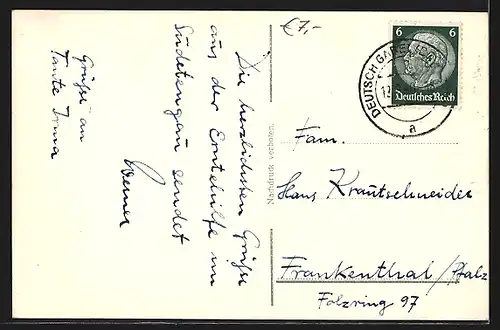 € 7,-
Die herzlichsten Grüße
aus der Erntehilfe im
Sudetengau sendet
Werner
Grüße an
Tante Irma
Nachdruck verboten.
6 6
Deutsches Reich
DEUTSCH GA
a
Fam.
Hans Krautschneider
Frankenthal/Pfalz
Folzring 97